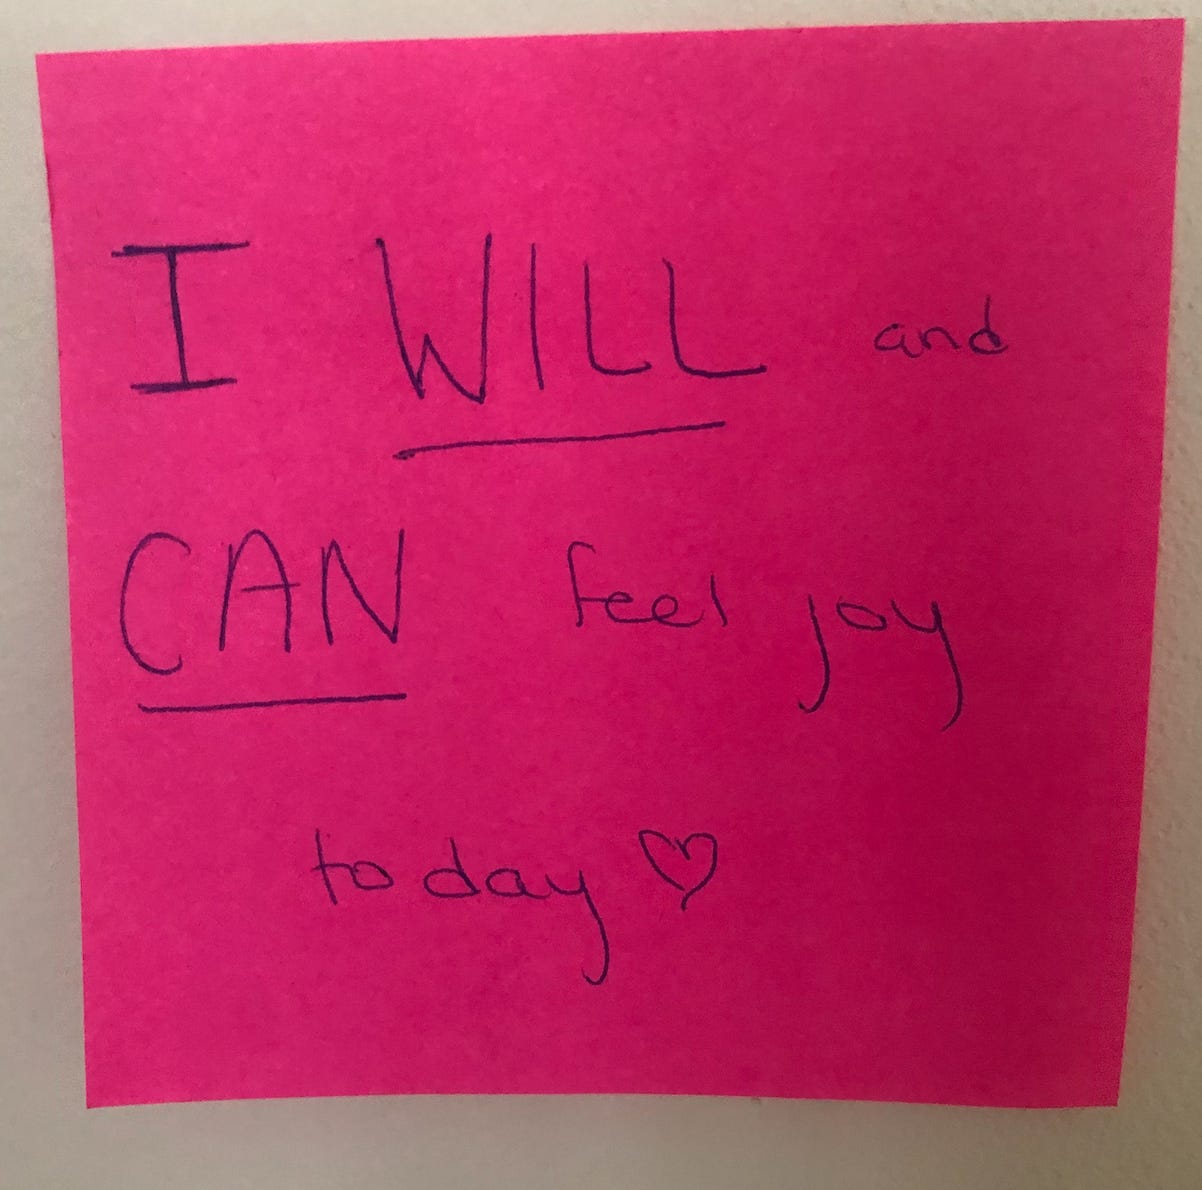 I WILL and
CAN feel joy
today ♡